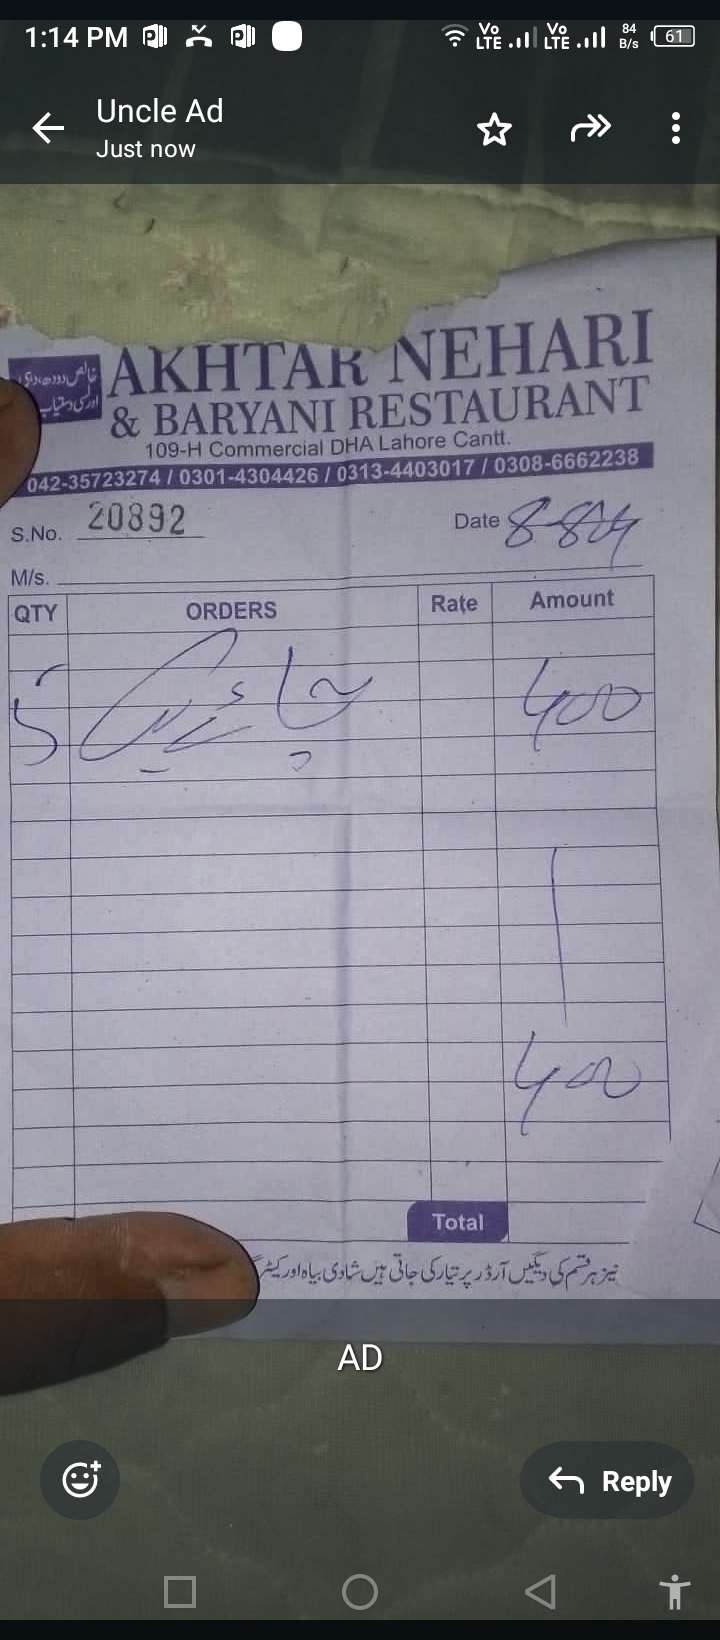 1:14 PM Vo LTE Vo LTE 84 B/s 61
Uncle Ad
Just now
AKHTAR NEHARI
& BARYANI RESTAURANT
خالص دودھ، دہی
اور کی دستیاب
109-H Commercial DHA Lahore Cantt.
042-35723274 / 0301-4304426 / 0313-4403017 / 0308-6662238
S.No. 20892 Date 8-8-24
M/s.
QTY ORDERS Rate Amount
5 چائے 400
400
Total
نیز ہر قسم کی دیگیں آرڈر پر تیار کی جاتی ہیں شادی بیاہ اور
AD
Reply